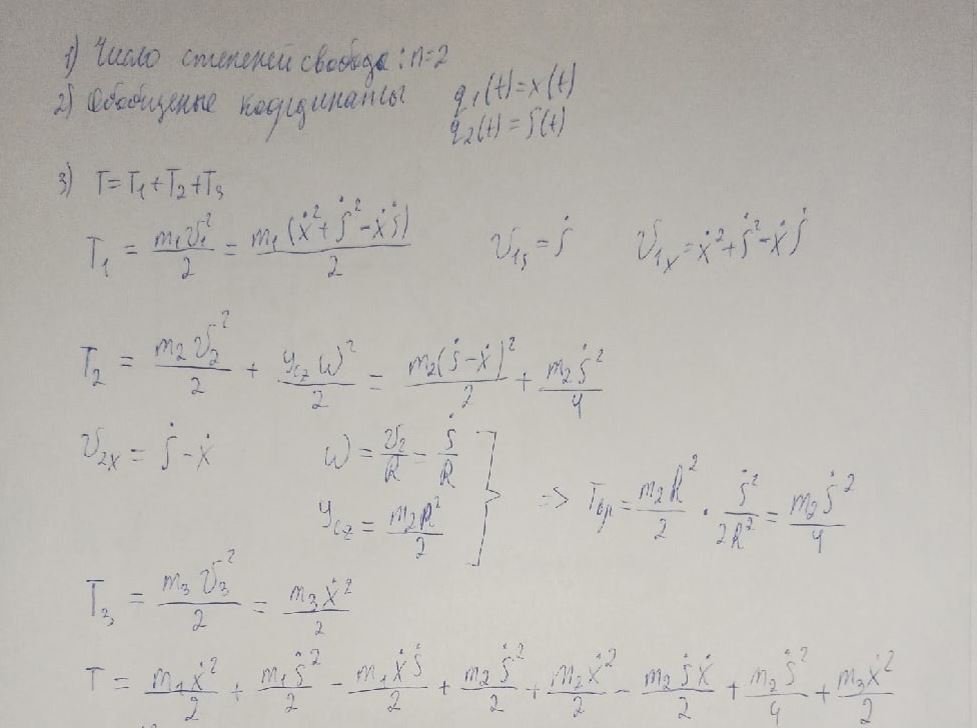 1) Число степеней свобода: n=2
2) Обобщеные координаты q₁(t)=x(t)
q₂(t)=s(t)
3) T=T₁+T₂+T₃
T₁ = m₁v₁²/2 = m₁(ẋ²+ṡ²-ẋṡ)/2 v₁ₛ=ṡ v₁ₓ=ẋ²+ṡ²-ẋṡ
T₂ = m₂v₂²/2 + y_cz ω²/2 = m₂(ṡ-ẋ)²/2 + m₂ṡ²/4
v₂ₓ = ṡ-ẋ ω = v₂/R = ṡ/R
y_cz = m₂R²/2 } => T_вр = m₂R²/2 · ṡ²/2R² = m₂ṡ²/4
T₃ = m₃v₃²/2 = m₃ẋ²/2
T = m₁ẋ²/2 + m₁ṡ²/2 - m₁ẋṡ/2 + m₂ṡ²/2 + m₂ẋ²/2 - m₂ṡẋ/2 + m₂ṡ²/4 + m₃ẋ²/2